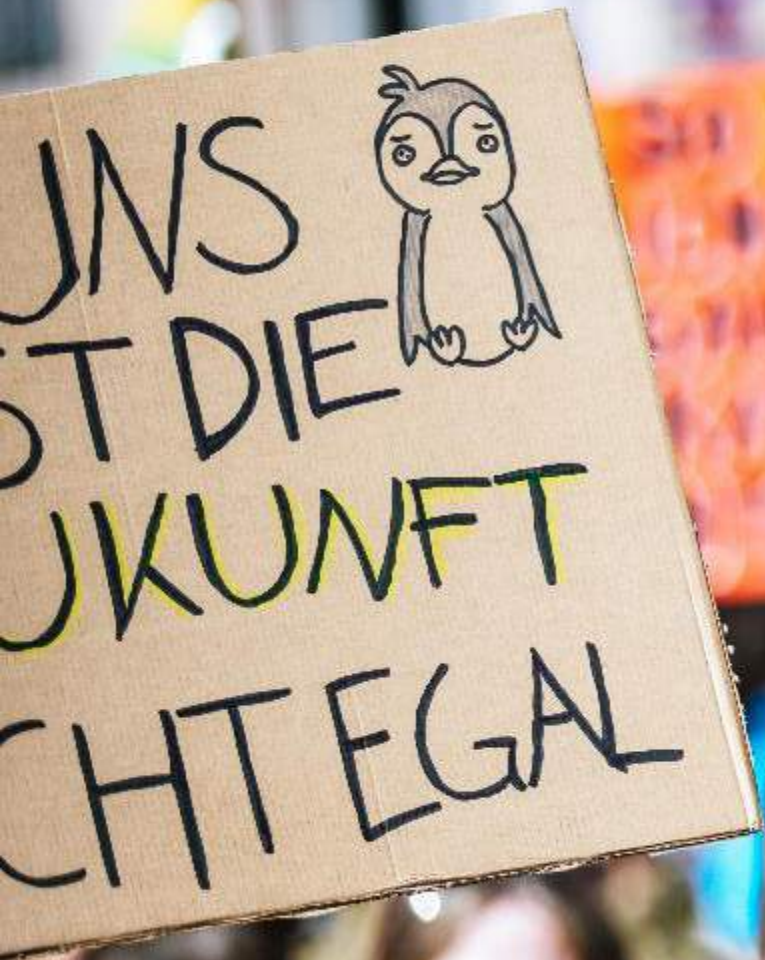 UNS
ST DIE
UKUNFT
CHT EGAL